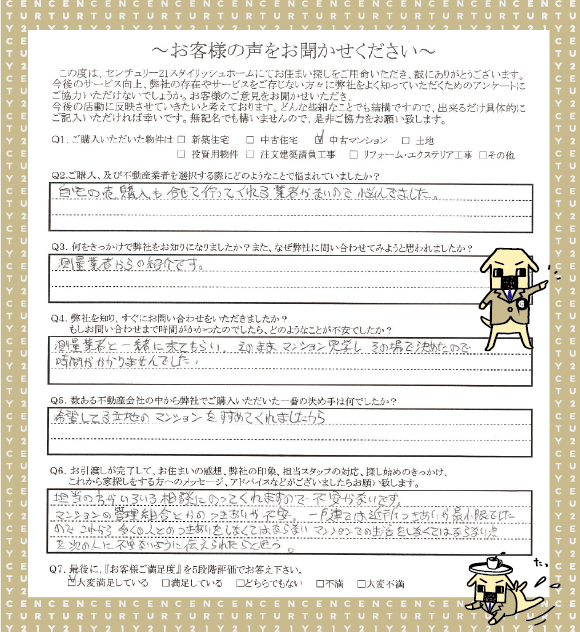 ～お客様の声をお聞かせください～
この度は、センチュリー21スタイリッシュホームにてお住まい探しをご用命いただき、誠にありがとうございます。
今後のサービス向上、弊社の存在やサービスをご存じない方々に弊社をよく知っていただくためのアンケートに
ご協力いただけないでしょうか。お客様のご意見をお聞かせいただき、
今後の活動に反映させていきたいと考えております。どんな些細なことでも結構ですので、出来るだけ具体的に
ご記入いただければ幸いです。無記名でも構いませんので、是非ご協力をお願い致します。
Q1. ご購入いただいた物件は □ 新築住宅 □ 中古住宅 ☑ 中古マンション □ 土地
□ 投資用物件 □ 注文建築請負工事 □ リフォーム・エクステリア工事 □その他
Q2.ご購入、及び不動産業者を選択する際にどのようなことで悩まれていましたか？
自宅の売購入も含せて行ってくれる業者がないので悩んでました。
Q3. 何をきっかけで弊社をお知りになりましたか？また、なぜ弊社に問い合わせてみようと思われましたか？
測量業者からの紹介です。
Q4. 弊社を知り、すぐにお問い合わせをいただきましたか？
もしお問い合わせまで時間がかかったのでしたら、どのようなことが不安でしたか？
測量業者と一緒に来てもらい、そのままマンション見学し その場で決めたので
時間がかかりませんでした。
Q5. 数ある不動産会社の中から弊社でご購入いただいた一番の決め手は何でしたか？
希望してる立地のマンションをすすめてくれましたから
Q6. お引渡しが完了して、お住まいの感想、弊社の印象、担当スタッフの対応、探し始めのきっかけ、
これから家探しをする方へのメッセージ、アドバイスなどがございましたらお願い致します。
担当の方がいろいろ相談にのってくれますので不安がないです。
マンションの管理組合とかのつきあいが不安。一戸建ては近所つきあいが最小限でした
ので これから多くの人とのつきあいをしなくてはならない マンションでの生活をしなくてはならない点
を次の人に不安ないように伝えられたらと思う。
Q7. 最後に、『お客様ご満足度』を5段階評価でお答え下さい。
☑大変満足している □満足している □どちらでもない □不満 □大変不満